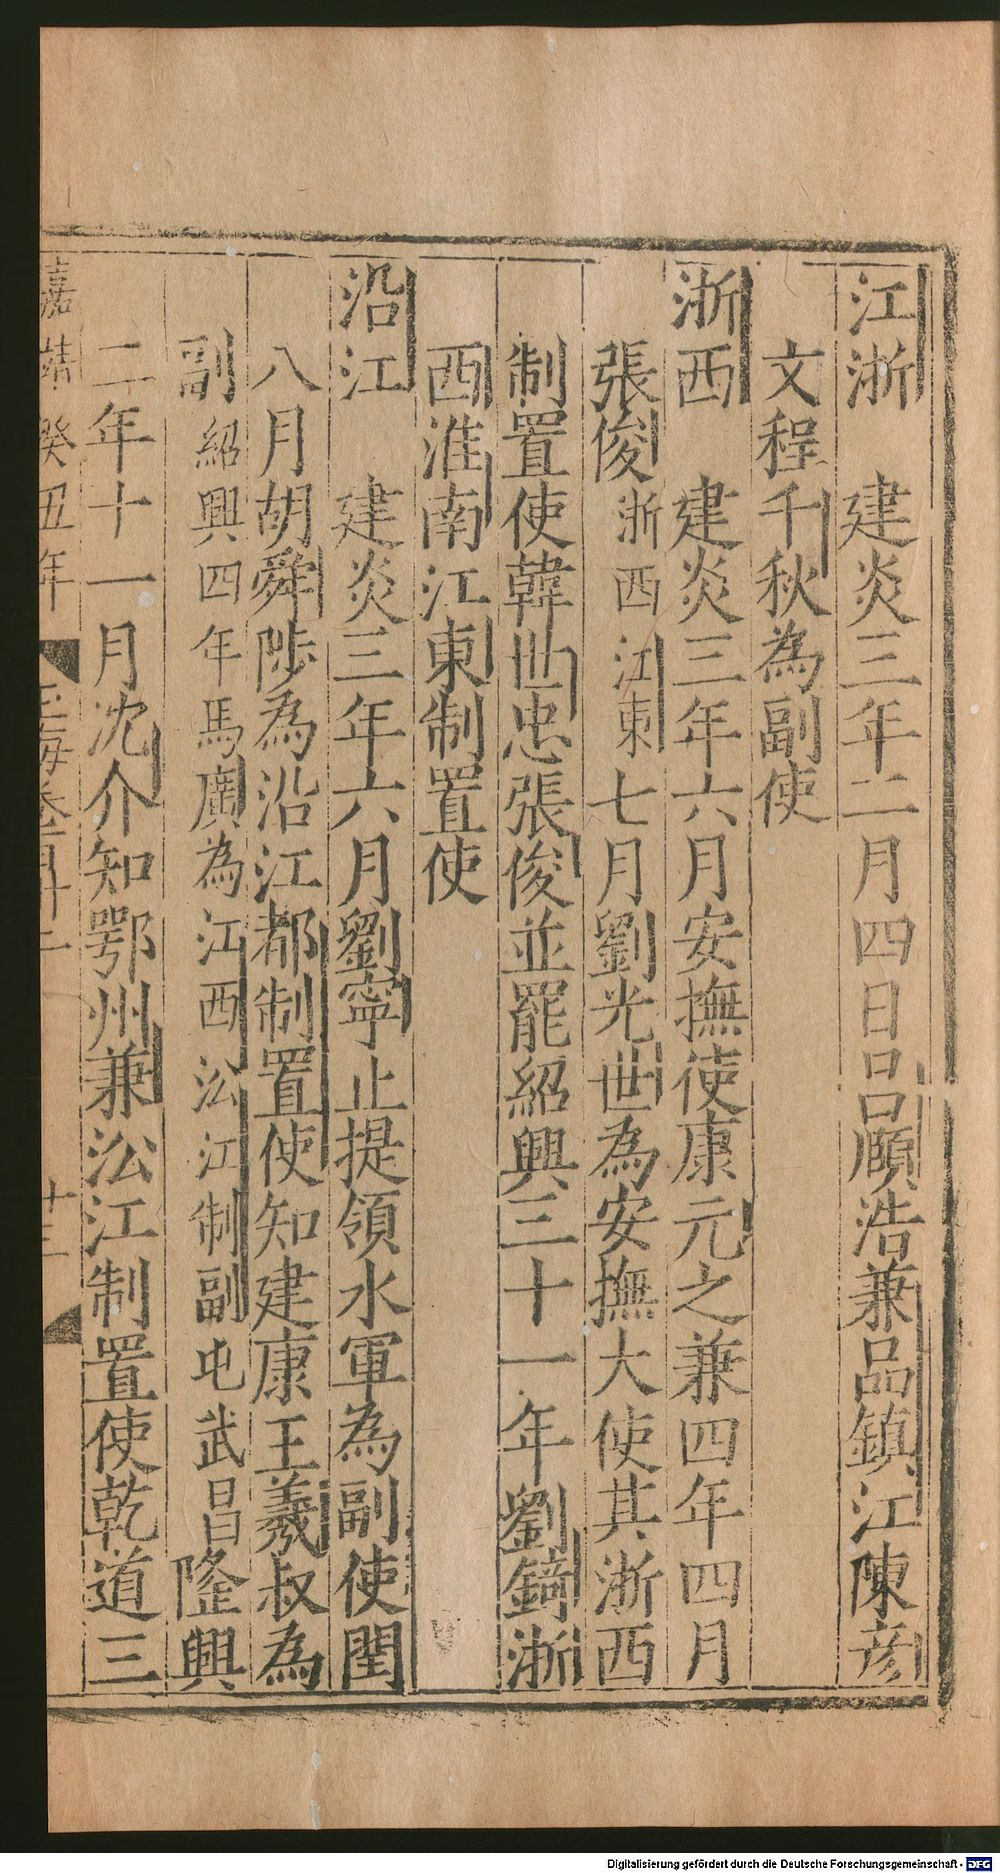 江浙　建炎三年二月四日呂頤浩兼品鎮江陳彥
文程千秋為副使
浙西　建炎三年六月安撫使康元之兼四年四月
張俊浙西江東七月劉光世為安撫大使其浙西
制置使韓世忠張俊並罷紹興三十一年劉錡浙
西淮南江東制置使
沿江　建炎三年六月劉寧止提領水軍為副使閏
八月胡舜陟為沿江都制置使知建康王羲叔為
副紹興四年馬廣為江西㳂江制副屯武昌隆興
二年十一月沈介知鄂州兼㳂江制置使乾道三
嘉靖癸丑年　玉海卷　十三
Digitalisierung gefördert durch die Deutsche Forschungsgemeinschaft - DFG